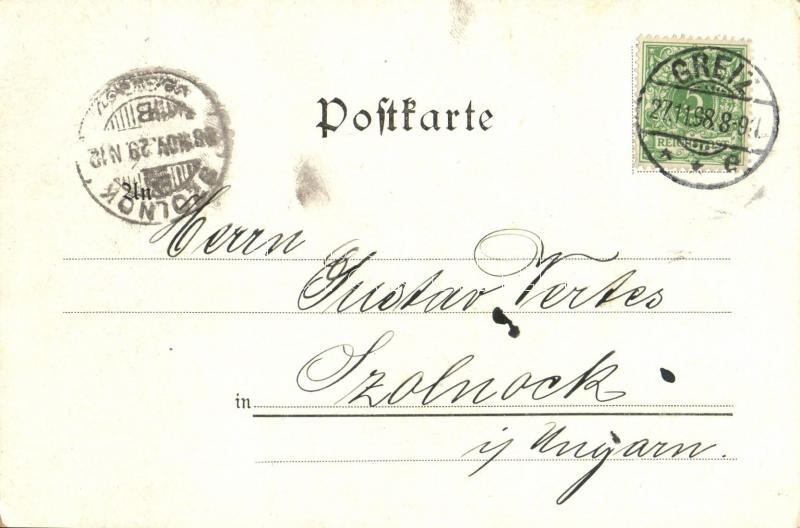 Postkarte
GREIZ
27.11.98.8-9V.
REICHSPOST
SZOLNOK
98 NOV. 29. N 12
B
An
Herrn
Gustav Vertes
in Szolnock
i/ Ungarn.